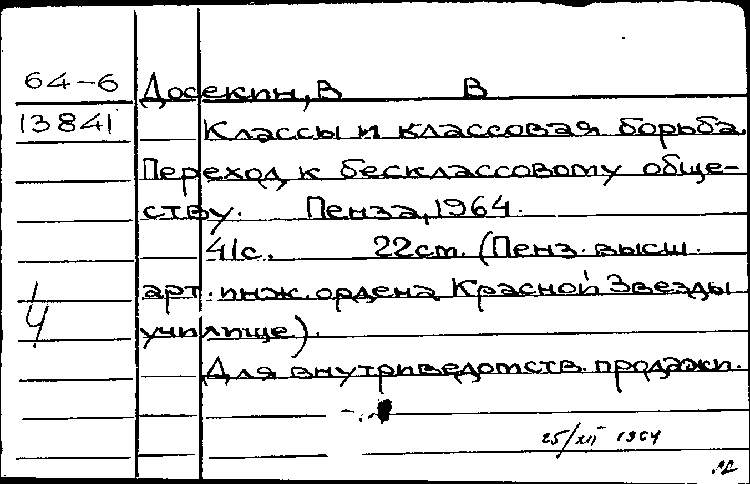 64-6
Досекин, В В
13841
Классы и классовая борьба.
Переход к бесклассовому обще-
ству. Пенза, 1964.
41с. 22см. (Пенз. высш.
арт. инж. ордена Красной Звезды
училище).
Для внутриведомств. продажи.
25/XII 1964